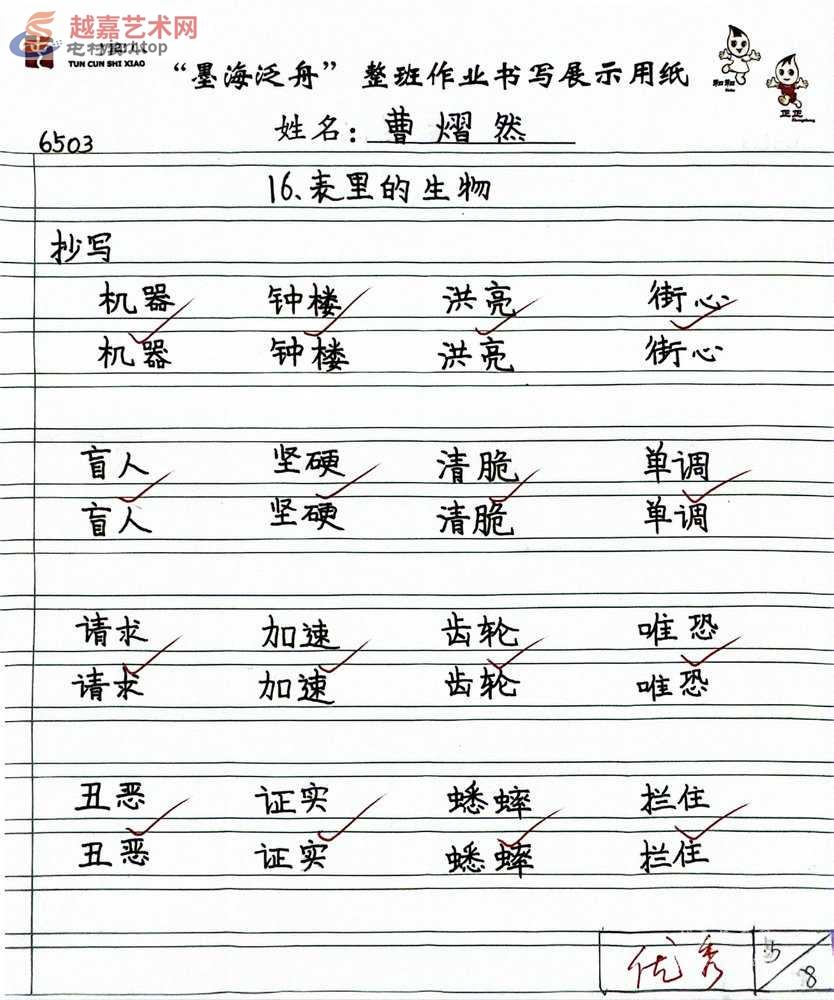 越嘉艺术网
yjart.top
TUN CUN SHI XIAO
“墨海泛舟”整班作业书写展示用纸
和和
正正
6503
姓名：曹熠然
16、表里的生物
抄写
机器 钟楼 洪亮 街心
机器 钟楼 洪亮 街心
盲人 坚硬 清脆 单调
盲人 坚硬 清脆 单调
请求 加速 齿轮 唯恐
请求 加速 齿轮 唯恐
丑恶 证实 蟋蟀 拦住
丑恶 证实 蟋蟀 拦住
优秀 5/8